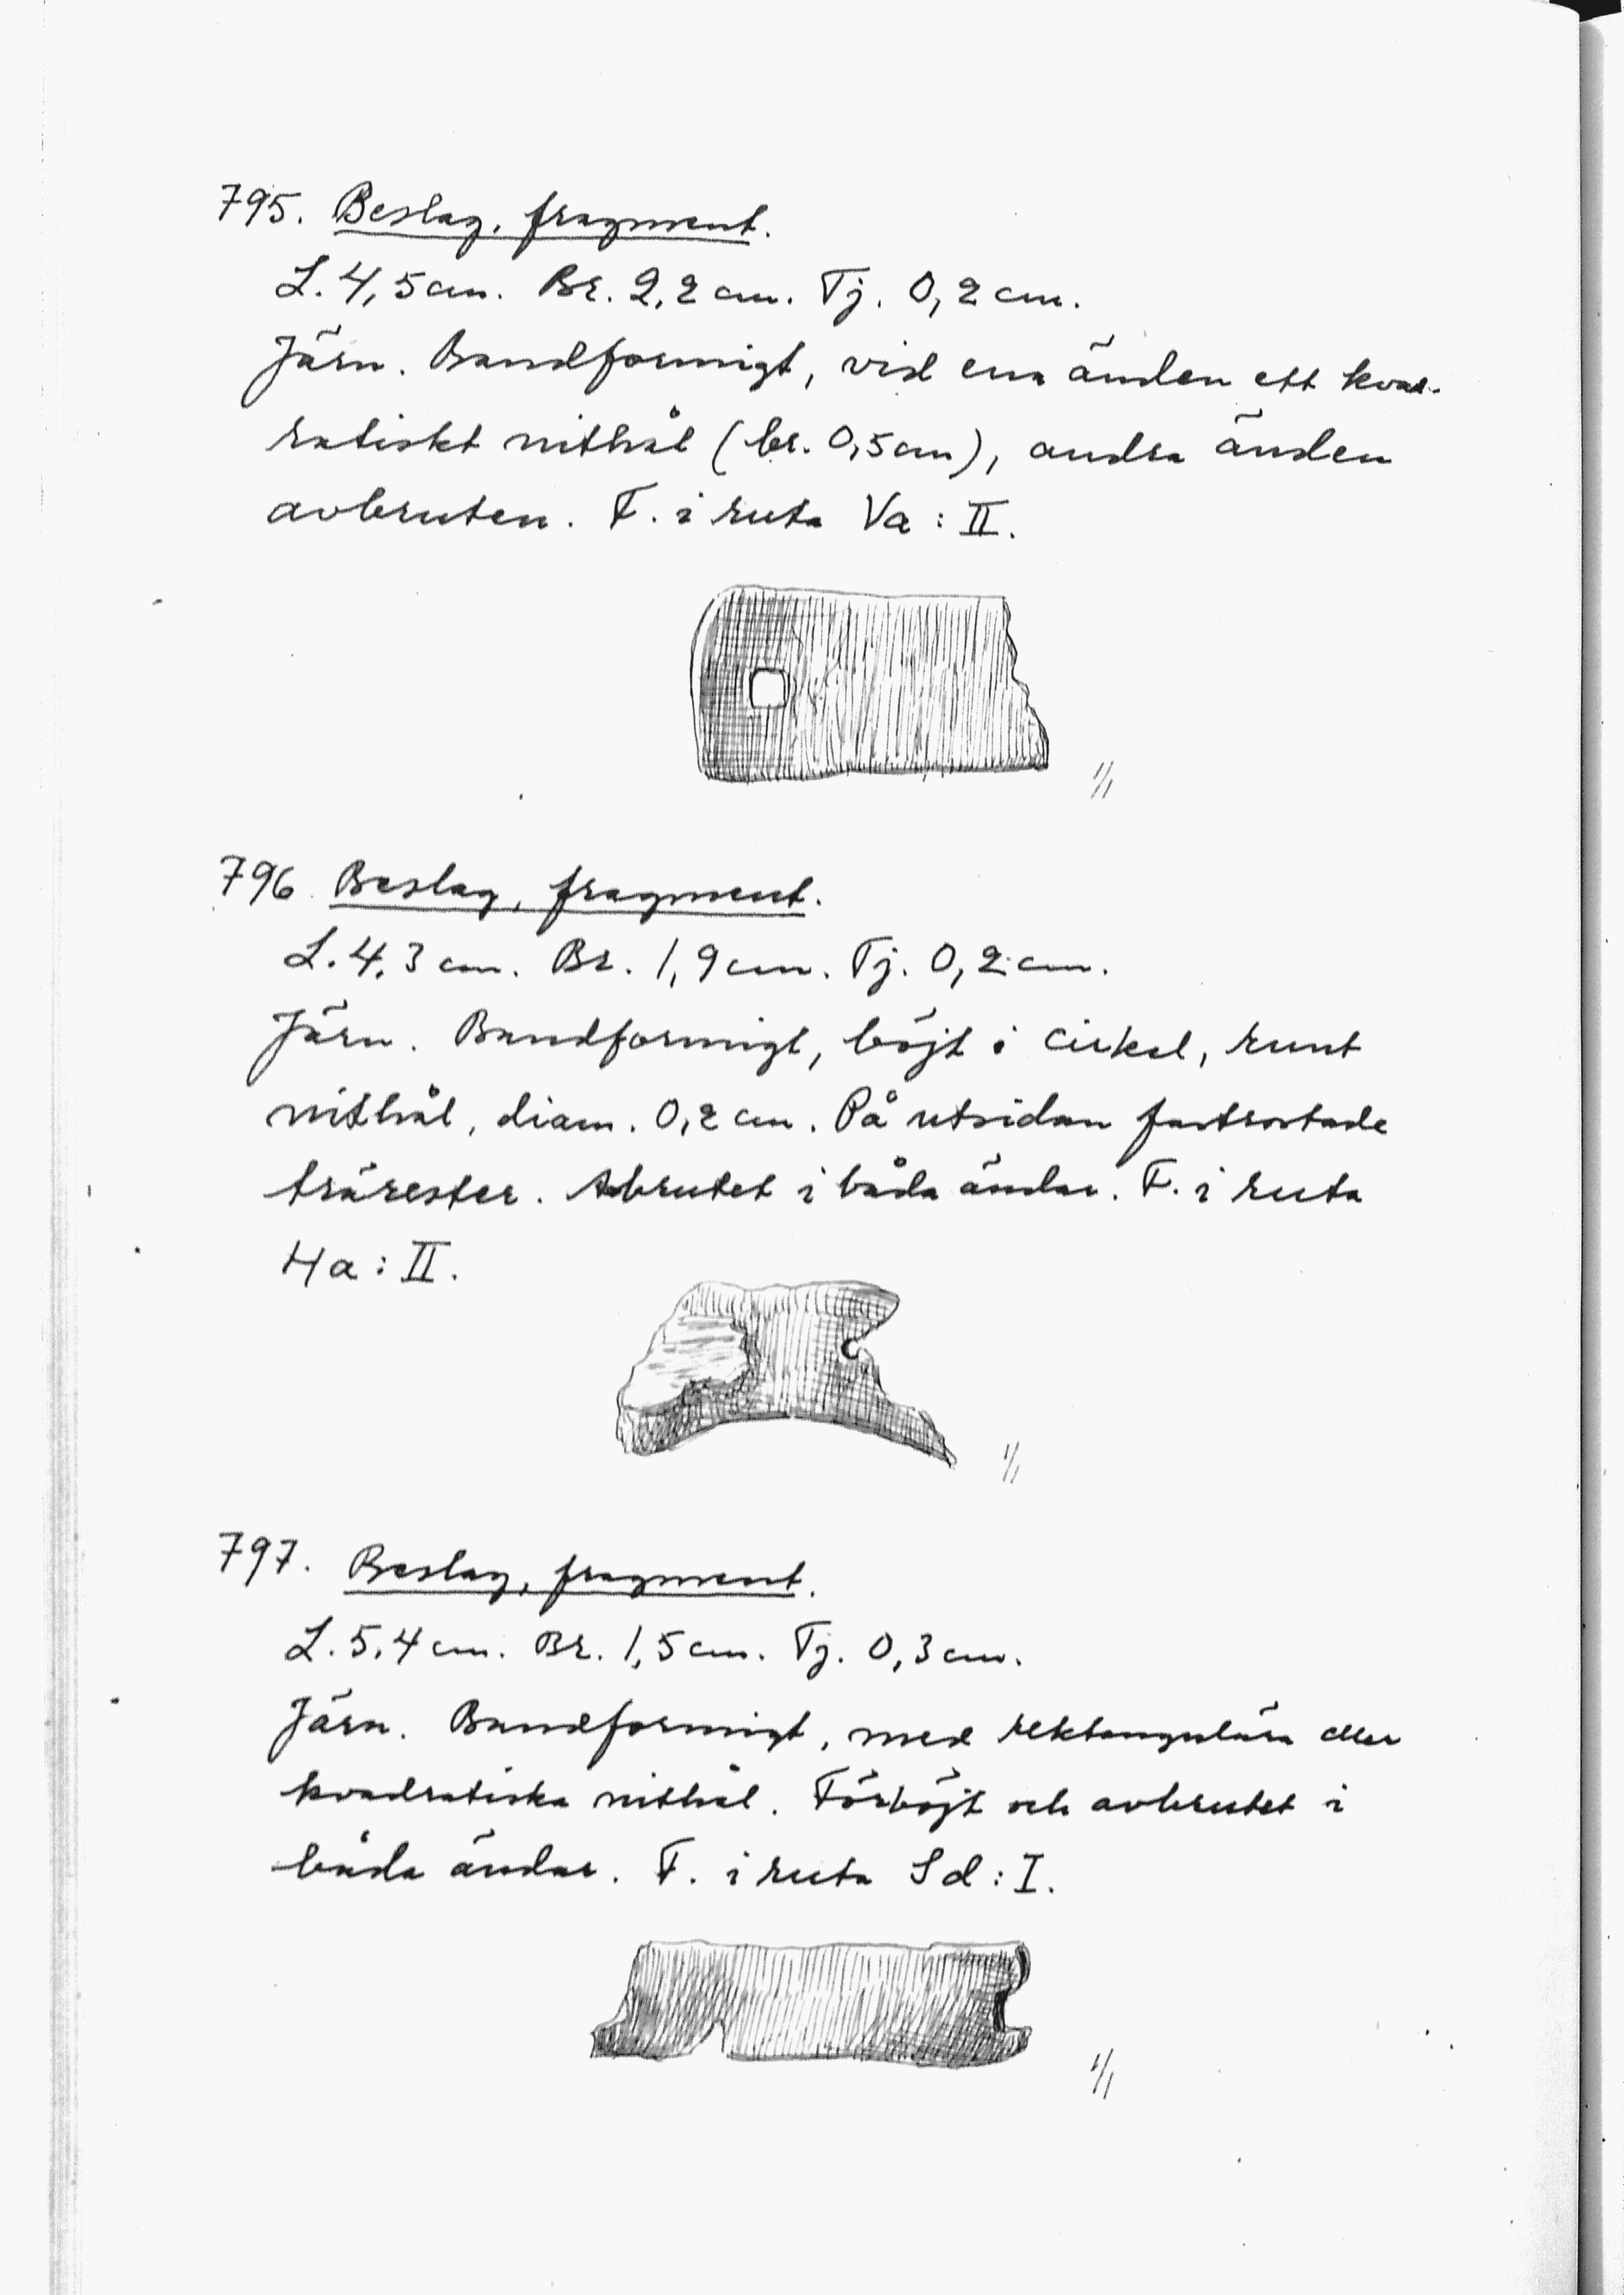 795. Beslag, fragment.
L. 4,5 cm. Br. 2,2 cm. Tj. 0,2 cm.
Järn. Bandformigt, vid ena änden ett kvad-
ratiskt nithål (br. 0,5 cm), andra änden
avbruten. F. i ruta Va : II.
1/1
796. Beslag, fragment.
L. 4,3 cm. Br. 1,9 cm. Tj. 0,2 cm.
Järn. Bandformigt, böjt i cirkel, runt
nithål, diam. 0,2 cm. På utsidan fastrostade
trärester. Abrutet i båda ändar. F. i ruta
Ha : II.
1/1
797. Beslag, fragment.
L. 5,4 cm. Br. 1,5 cm. Tj. 0,3 cm.
Järn. Bandformigt, med rektangulära eller
kvadratiska nithål. Förböjt och avbrutet i
båda ändar. F. i ruta Sd : I.
1/1